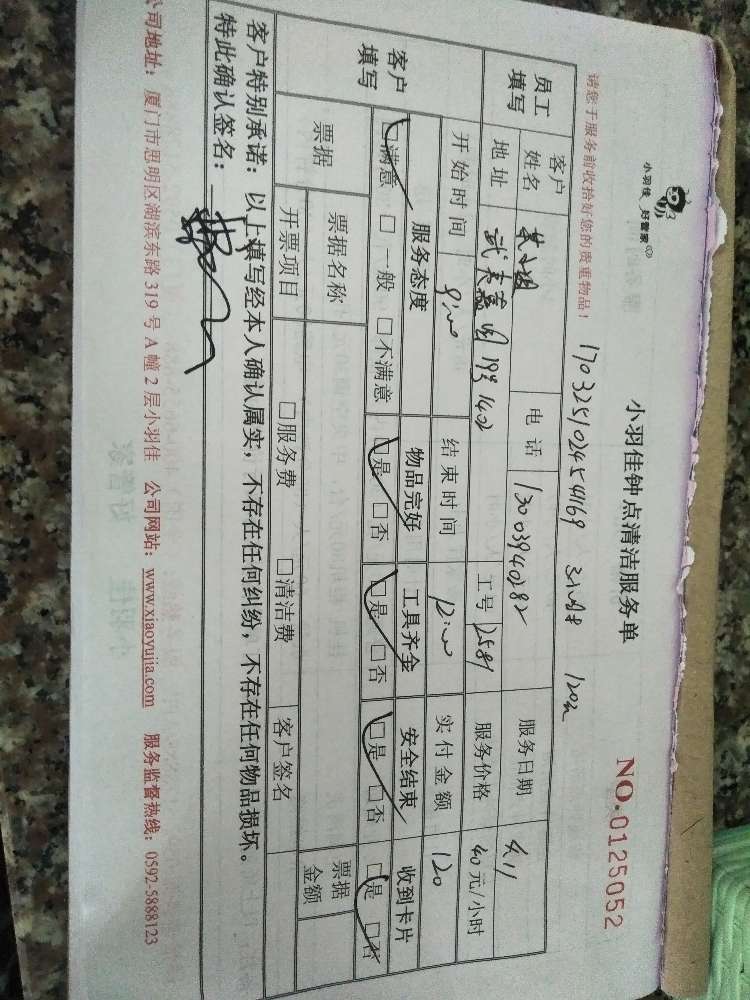 小羽佳 好管家
小羽佳钟点清洁服务单
NO.0125052
请您于服务前收拾好您的贵重物品！
170325102454169 3小时 120元
员工填写
客户姓名
小姐
电话
13003940282
服务日期
4.11
地址
武夷嘉园 19号 1402
工号
2589
服务价格
40元/小时
开始时间
9:00
结束时间
12:00
实付金额
120
客户填写
服务态度
物品完好
工具齐全
安全结束
收到卡片
□满意 □一般 □不满意
□是 □否
□是 □否
□是 □否
□是 □否
票据
票据名称
票据金额
开票项目
□服务费 □清洁费
客户签名
客户特别承诺：以上填写经本人确认属实，不存在任何纠纷，不存在任何物品损坏。
特此确认签名：
公司地址：厦门市思明区湖滨东路 319 号 A 幢 2 层小羽佳 公司网站：www.xiaoyujia.com 服务监督热线：0592-5888123